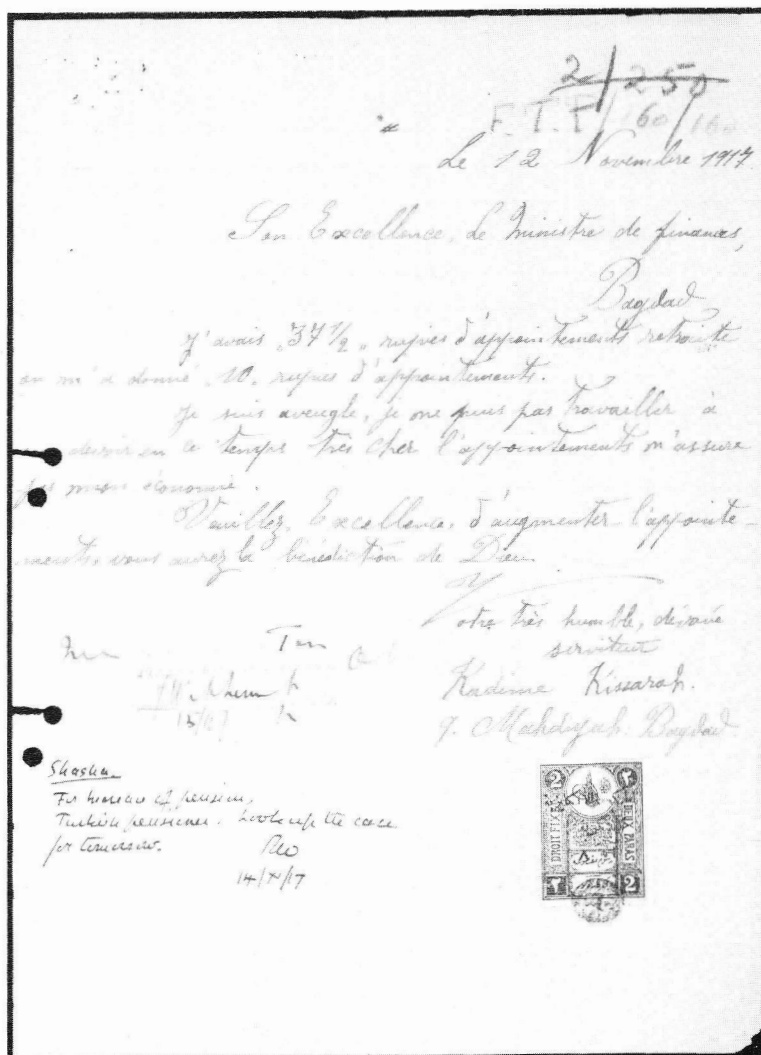 2/250
F.T.F/160/160
Le 12 Novembre 1917.
Son Excellence, Le Ministre de finances,
Bagdad
J'avais "37 1/2" rupies d'appointements retraite
on m'a donné "10" rupies d'appointements.
Je suis aveugle, je ne puis pas travailler à
devoir en ce temps très cher l'appointements m'assure
pas mon économie.
Veuillez, Excellence, d'augmenter l'appointe-
ments, vous aurez la bénédiction de Dieu
Votre très humble, dévoué
serviteur
Kadime Kissarah.
q. Mahdiyah. Bagdad.
Shasha
For bureau of pension,
Turkish pensioner. Look up the case
for tomorrow.
14/X/17
2
DROIT FIXE
DEUX PARAS
٢
2